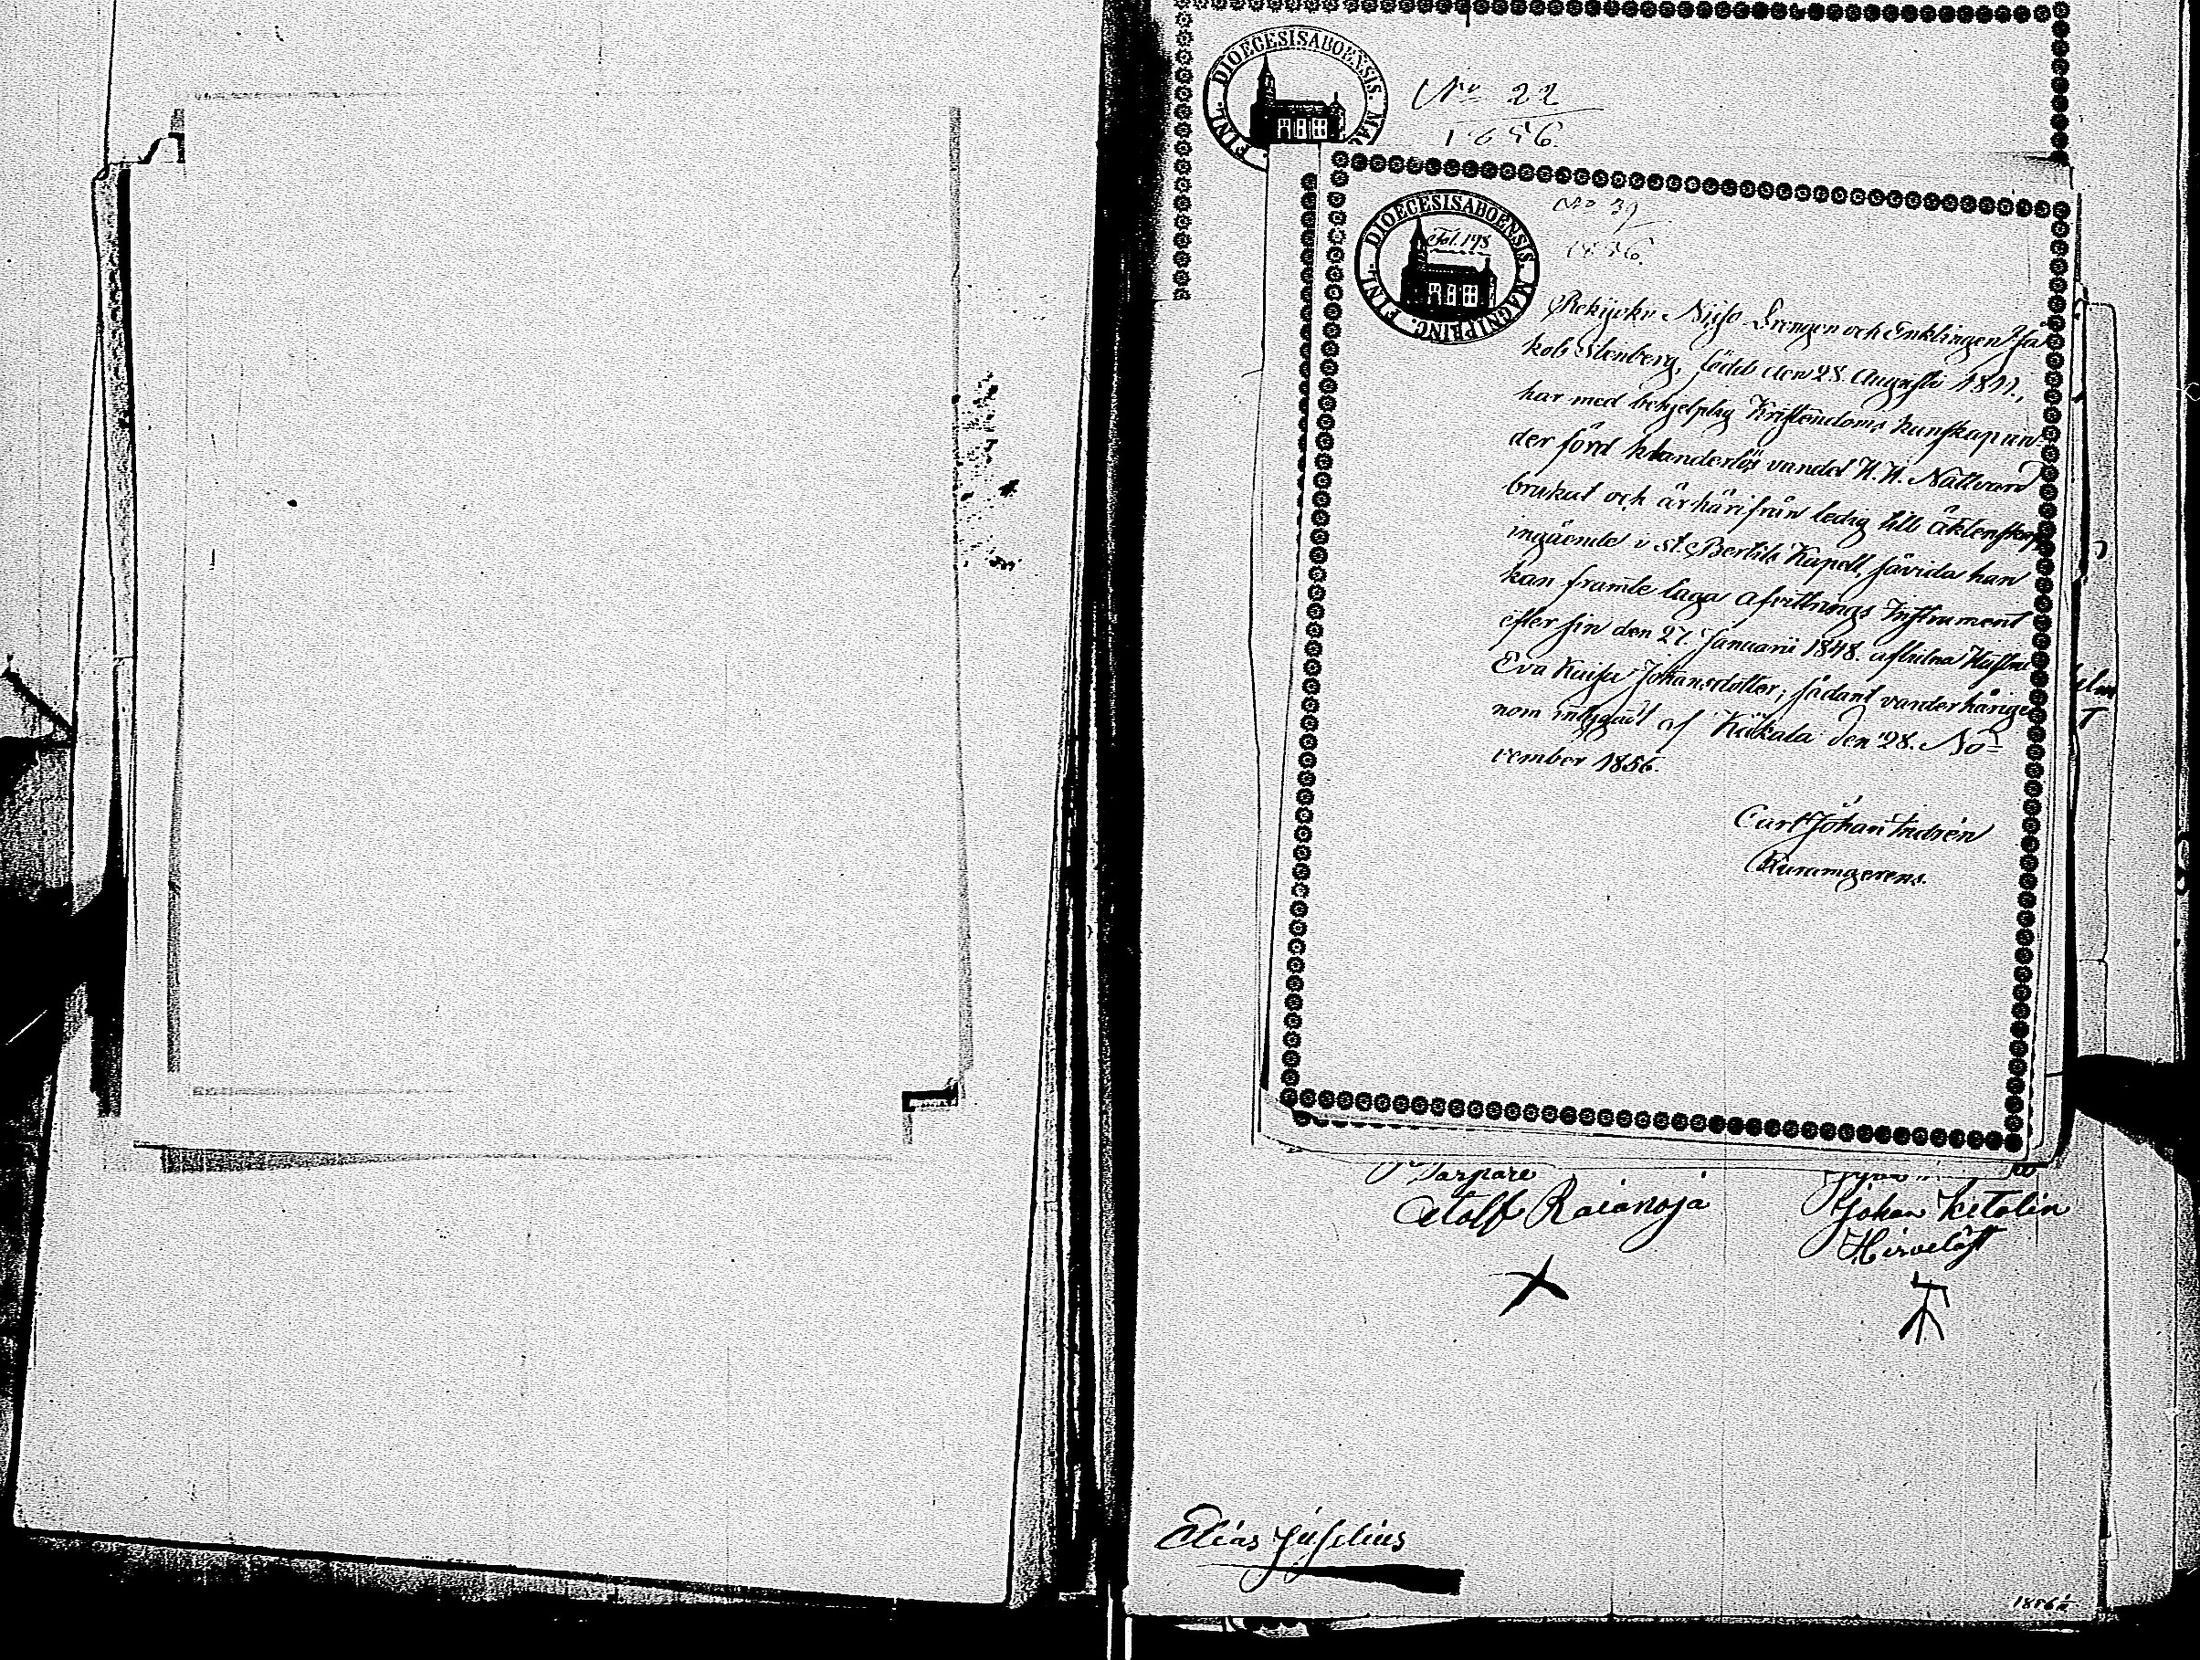 DIOECESISABOENSIS. MA
FINL.
No 22
1856.
DIOECESISABOENSIS. MAGNI PRINC. FINL.
Fol. 148
No 39
1856.
Nuso Drengen och Enklingen Ja
kob Stenberg, född den 28. Augusti 1811,
har med behjelplig Kristendoms kunskap un
der förd klanderlös vandel H. H. Nattvard
brukat och är härifrån ledig till äktenskaps
ingående i St. Bertils Kapell, såvida han
kan framte laga afvittrings Instrument
efter sin den 27 Januarii 1848. aflidna Hustru
Eva Kaisa Johansdotter; sådant varder härige
nom intygadt af Kiikala den 28. No=
vember 1856.
Carl Johan Indrén
Adolf Raianoja
Johan Ketolin
Hirvelä
Elias Juselius
1856